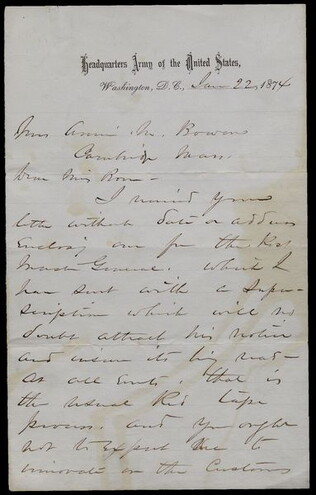 Headquarters Army of the United States,
Washington, D. C., Jan 22, 1874
Miss Annie M. Bowen
Cambridge Mass.
Dear Miss Bowen -
I received your
letter without date or address
Enclosing one for the Post
Master General. which I
have sent with a Super-
scription which will no
doubt attract his notice
and insure its being read -
At all Events, that is
the usual Red tape
process. and you ought
not to Expect me to
innovate on the Customs